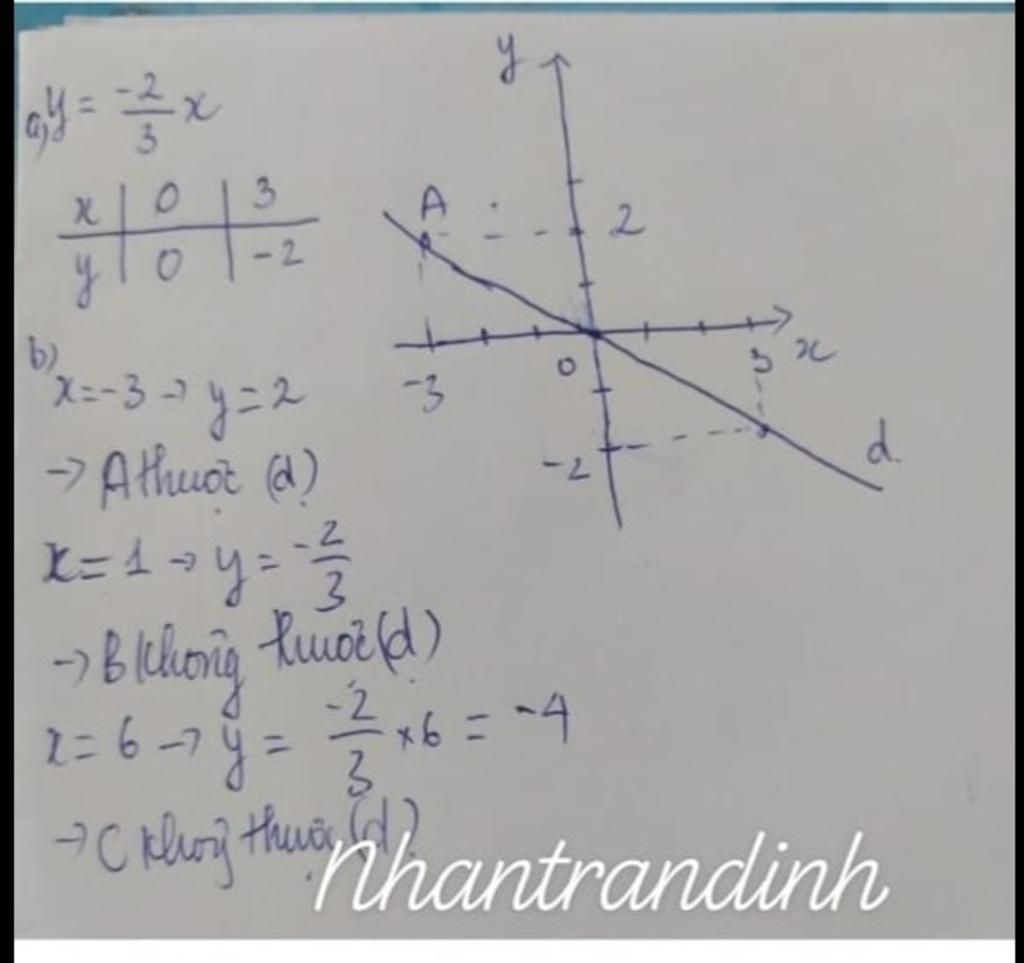 a, y = -2/3 x
x | 0 | 3
y | 0 | -2
b)
x=-3 → y=2
→ A thuộc (d)
x=1 → y = -2/3
→ B Không thuộc (d)
x=6 → y = -2/3 × 6 = -4
→ C khong thuộc (d)
y
A
2
-3
0
3
x
-2
d
Nhantrandinh